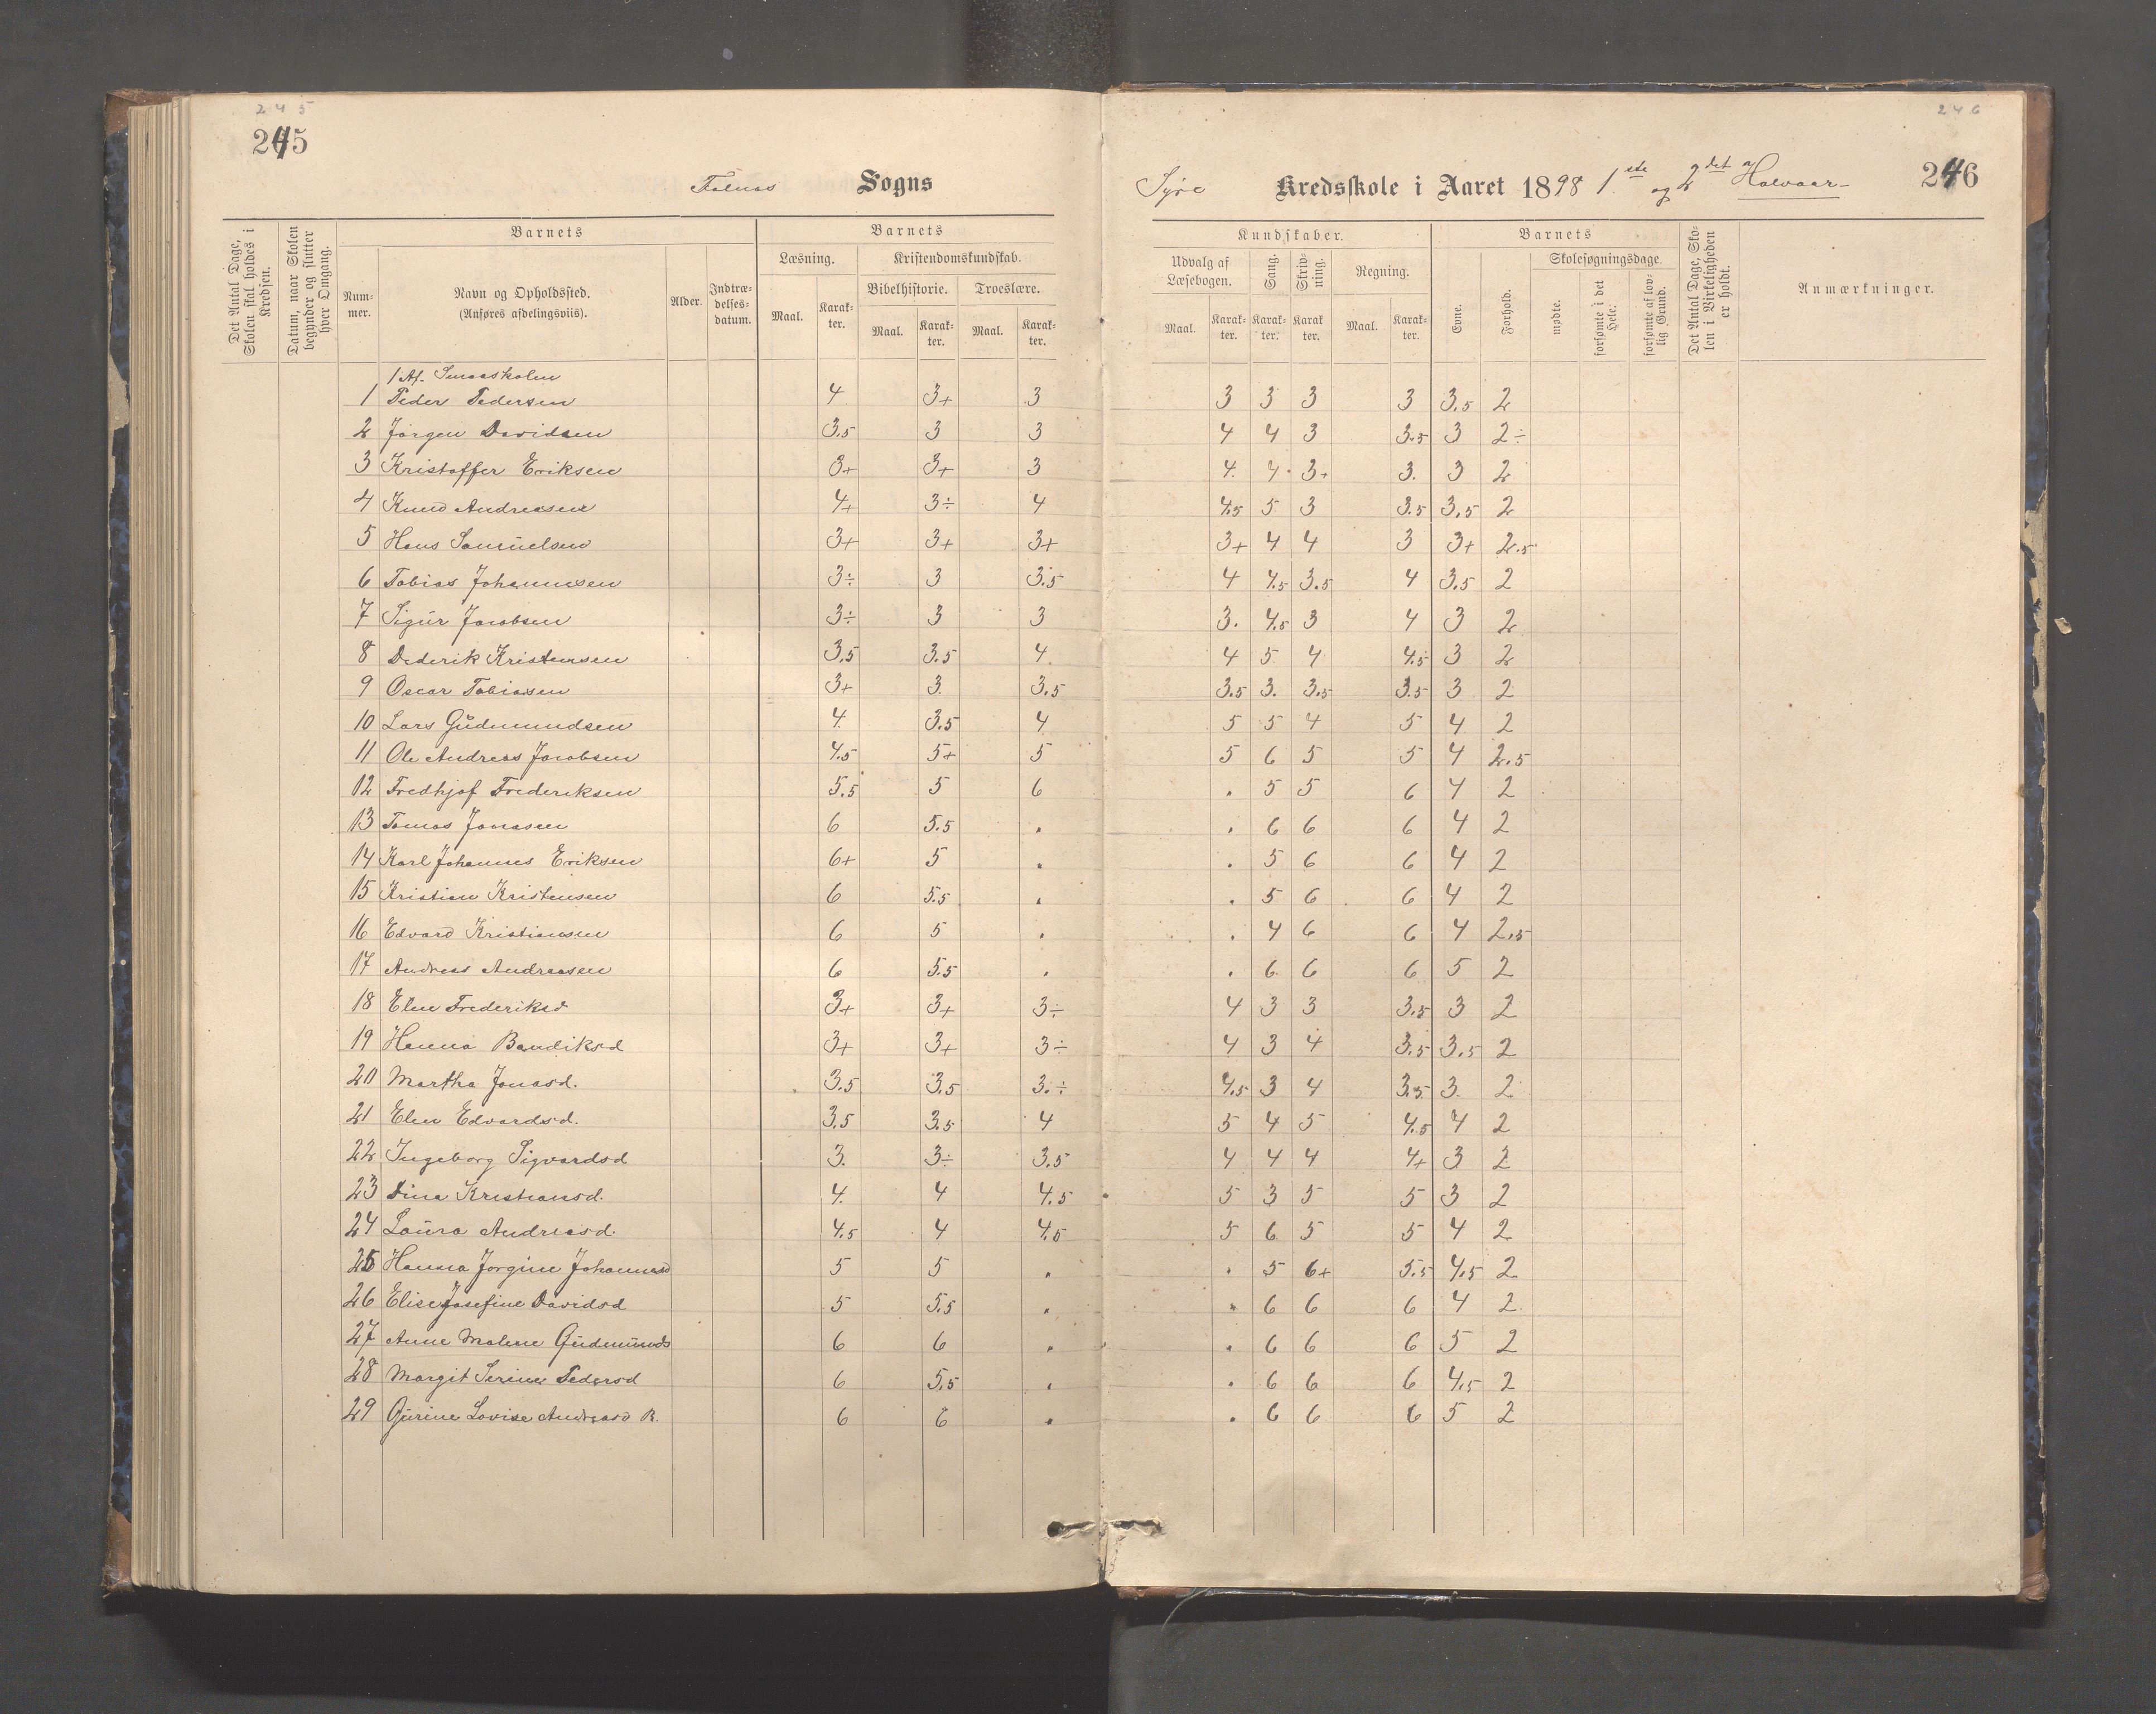 245
245
Falnes Sogns
Det Antal Dage, Skolen skal holdes i Kredsen.
Datum, naar Skolen begynder og slutter hver Omgang.
Barnets
Num-mer.
Navn og Opholdssted.
(Anføres afdelingsviis).
Alder.
Indtræ-delses-datum.
Barnets
Læsning.
Kristendomskundskab.
Bibelhistorie.
Troeslære.
Maal. Karak-ter. Maal. Karak-ter. Maal. Karak-ter.
1 Af. Smaaskolen
1 Peder Pedersen 4 3+ 3
2 Jørgen Davidsen 3.5 3 3
3 Kristoffer Eriksen 3+ 3+ 3
4 Knud Andreasen 4+ 3÷ 4
5 Hans Samuelsen 3+ 3+ 3+
6 Tobias Johannesen 3÷ 3 3.5
7 Sigur Jacobsen 3÷ 3 3
8 Dederik Kristensen 3,5 3.5 4
9 Oscar Tobiasen 3+ 3 3,5
10 Lars Gudmundsen 4 3.5 4
11 Ole Andreas Jacobsen 4.5 5+ 5
12 Fredhjof Frederiksen 5.5 5 6
13 Tomas Jonasen 6 5.5 .
14 Karl Johannes Eriksen 6+ 5 .
15 Kristian Kristensen 6 5.5 .
16 Edvard Kristiansen 6 5 .
17 Andreas Andreasen 6 5.5 .
18 Eline Frederiksd 3+ 3+ 3÷
19 Hanna Bendiksd 3+ 3+ 3÷
20 Martha Jonasd. 3.5 3.5 3.÷
21 Elen Edvardsd. 3.5 3.5 4
22 Ingeborg Sigvardsd 3. 3÷ 3.5
23 Dina Kristiansd. 4. 4 4.5
24 Laura Andreasd. 4.5 4 4.5
25 Hanna Jorgine Johannesd 5 5 .
26 Elise Josefine Davidsd 5 5.5 .
27 Anne Malene Gudmunds 6 6 .
28 Margit Serine Pedersd 6 5.5 .
29 Gurine Lovise Andreasd B. 6 6 .
246
246
Syre Kredsskole i Aaret 1898 1ste og 2det Halvaar
Kundskaber.
Udvalg af Læsebogen.
Sang.
Skriv-ning.
Regning.
Maal. Karak-ter. Karak-ter. Karak ter. Maal. Karak-ter.
Barnets
Evne.
Forhold.
Skolesøgningsdage.
mødte.
forsømte i det Hele.
forsømte af lov-lig Grund.
Det Antal Dage, Sko-len i Virkeligheden er holdt.
Anmærkninger.
3 3 3 3 3.5 2
4 4 3 3.5 3 2÷
4. 4. 3+ 3. 3 2
4.5 5 3 3.5 3.5 2
3+ 4 4 3 3+ 2.5
4 4.5 3.5 4 3.5 2
3. 4.5 3 4 3 2
4 5 4 4.5 3 2
3.5 3. 3.5 3.5 3 2
5 5 4 5 4 2
5 6 5 5 4 2.5
. 5 5 6 4 2
. 6 6 6 4 2
. 5 6 6 4 2
. 5 6 6 4 2
. 4 6 6 4 2.5
. 6 6 6 5 2
4 3 3 3.5 3 2
4 3 4 3.5 3.5 2
4.5 3 4 3.5 3. 2
5 4 5 4.5 4 2
4 4 4 4+ 3 2
5 3 5 5 3 2
5 6 5 5 4 2
. 5 6+ 5.5 4.5 2
. 6 6 6 4 2
. 6 6 6 5 2
. 6 6 6 4.5 2
. 6 6 6 5 2